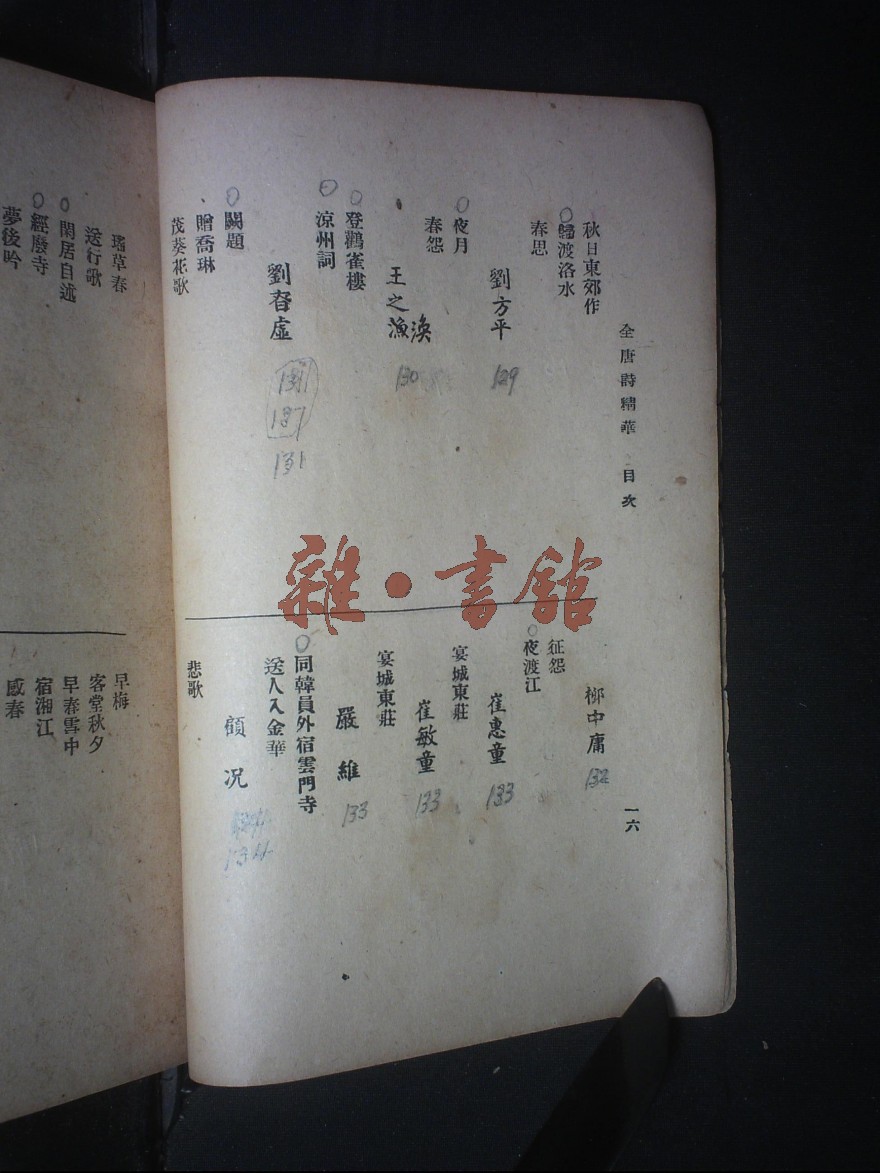 全唐詩精華 目次
一六
秋日東郊作
歸渡洛水
春思
劉方平
129
夜月
春怨
王之渙
130
登鸛雀樓
涼州詞
劉眘虛
131
137
131
闕題
贈喬琳
茂葵花歌
柳中庸
132
征怨
夜渡江
崔惠童
133
宴城東莊
崔敏童
133
宴城東莊
嚴維
133
同韓員外宿雲門寺
送人入金華
顧況
134
悲歌
瑤草春
送行歌
閑居自述
經廢寺
夢後吟
早梅
客堂秋夕
早春雪中
宿湘江
感春
雜·書館